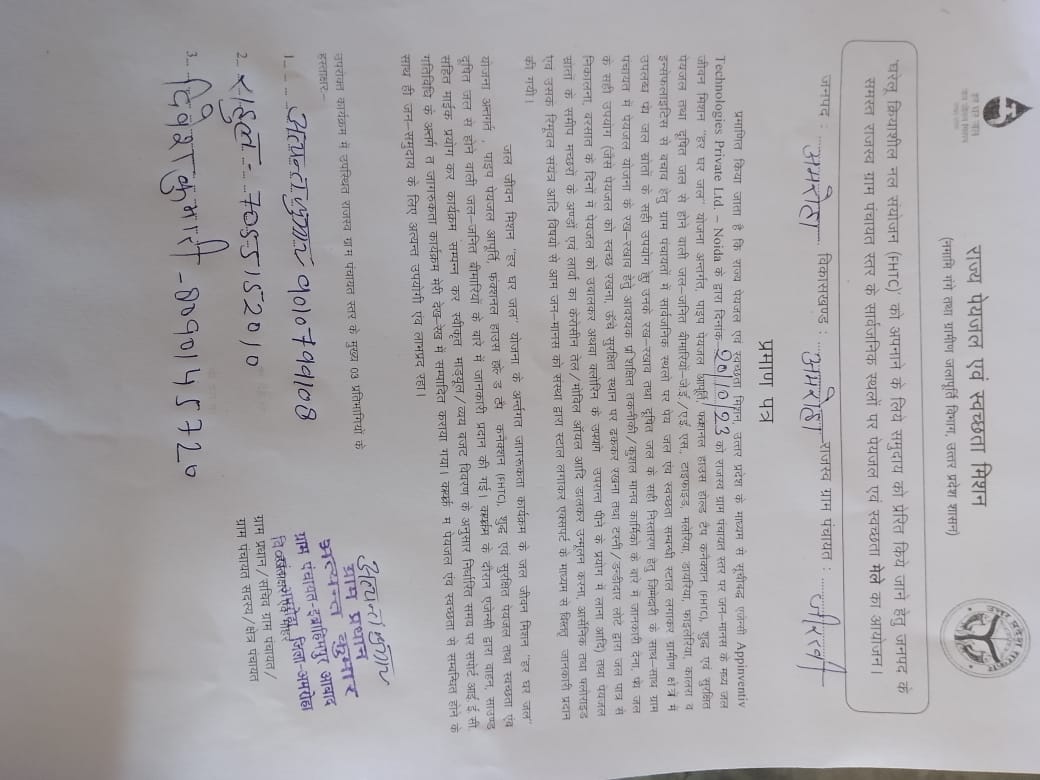 हर घर जल
जल जीवन मिशन
राज्य पेयजल एवं स्वच्छता मिशन
(नमामि गंगे तथा ग्रामीण जलापूर्ति विभाग, उत्तर प्रदेश शासन)
घरेलू क्रियाशील नल संयोजन (FHTC)' को अपनाने के लिये समुदाय को प्रेरित किये जाने हेतु जनपद के
समस्त राजस्व ग्राम पंचायत स्तर के सार्वजनिक स्थलों पर पेयजल एवं स्वच्छता मेले का आयोजन।
जनपद : अमरोहा विकासखण्ड : अमरोहा राजस्व ग्राम पंचायत :
प्रमाण पत्र
प्रमाणित किया जाता है कि राज्य पेयजल एवं स्वच्छता मिशन, उत्तर प्रदेश के माध्यम से सूचीबद्ध एजेन्सी Appinventiv
Technologies Private Ltd. – Noida के द्वारा दिनांक 20/10/23 को राजस्व ग्राम पंचायत स्तर पर जन–मानस के मध्य जल
जीवन मिशन "हर घर जल" योजना अन्तर्गत, पाइप पेयजल आपूर्ति फंक्शनल हाउस होल्ड टैप कनेक्शन (FHTC), शुद्ध एवं सुरक्षित
पेयजल तथा दूषित जल से होने वाली जल–जनित बीमारियों–जे.ई./ए.ई.एस., टाइफाइड, मलेरिया, डायरिया, फाइलेरिया, कालरा व
इन्सेफलाइटिस से बचाव हेतु ग्राम पंचायतों में सार्वजनिक स्थलों पर पेय जल एवं स्वच्छता सम्बन्धी स्टाल लगाकर ग्रामीण क्षेत्र में
उपलब्ध पेय जल स्रोतों के सही उपयोग हेतु उनके रख–रखाव तथा दूषित जल के सही निस्तारण हेतु जिम्मेदारी के साथ–साथ ग्राम
पंचायत में पेयजल योजना के रख–रखाव हेतु आवश्यक प्रशिक्षित तकनीकी/कुशल मानव कार्मिकों के बारे में जानकारी देना, पेय जल
के सही उपयोग (जैसे पेयजल को स्वच्छ रखना, ऊँचे सुरक्षित स्थान पर ढककर रखना तथा टोंटी/डन्डीदार लोटे द्वारा जल पात्र से
निकालना, बरसात के दिनों में पेयजल को उबालकर अथवा क्लोरिन के उपयोग उपरान्त पीने के प्रयोग में लाना आदि) तथा पेयजल
स्रोतों के समीप मच्छरों के अण्डों एवं लार्वा का केरोसीन तेल/मोबिल ऑयल आदि डालकर उन्मूलन करना, आर्सेनिक तथा फ्लोराइड
एवं उसके रिमूवल संयंत्र आदि विषयों से आम जन–मानस को संस्था द्वारा स्टाल लगाकर एक्सपर्ट के माध्यम से विस्तृत जानकारी प्रदान
की गयी।
जल जीवन मिशन "हर घर जल" योजना के अन्तर्गत जागरूकता कार्यक्रम के जल जीवन मिशन "हर घर जल"
योजना अन्तर्गत , पाइप पेयजल आपूर्ति फंक्शनल हाउस होल्ड टैप कनेक्शन (FHTC), शुद्ध एवं सुरक्षित पेयजल तथा स्वच्छता एवं
दूषित जल से होने वाली जल–जनित बीमारियों के बारे में जानकारी प्रदान की गई। कार्यक्रम के दौरान एजेन्सी द्वारा वाहन, साउण्ड
सहित माईक प्रयोग कर कार्यक्रम सम्पन्न कर स्वीकृत मड्यूल/व्यय बजट विवरण के अनुसार निर्धारित समय पर सपोर्ट आई.ई.सी.
गतिविधि के अर्न्तगत जागरूकता कार्यक्रम मेरी देख–रेख में सम्पादित कराया गया। कार्यक्रम में पेयजल एवं स्वच्छता से सम्बन्धित होने के
साथ ही जन–समुदाय के लिए अत्यन्त उपयोगी एवं लाभप्रद रहा।
उपरोक्त कार्यक्रम में उपस्थित राजस्व ग्राम पंचायत स्तर के मुख्य 03 प्रतिभागियों के
हस्ताक्षर:–
1. 9107949108
2. राहुल 70555152010
3. कुमारी - 8090145720
ग्राम प्रधान
ग्राम पंचायत-इब्राहिमपुर आबाद
जिला-अमरोहा
ग्राम प्रधान/सचिव ग्राम पंचायत/
ग्राम पंचायत सदस्य/क्षेत्र पंचायत